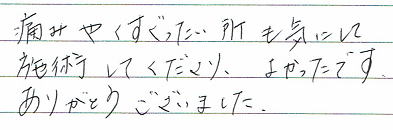 痛みやくすぐったい所も気にして
施術してくださり、よかったです.
ありがとうございました.